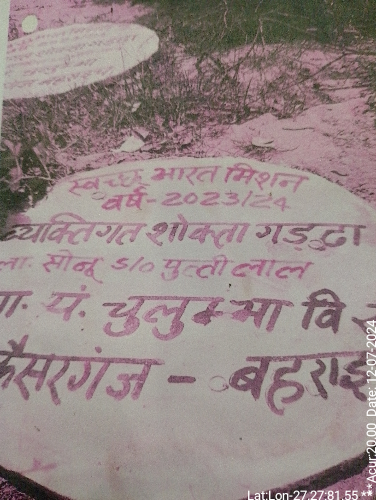 स्वच्छ भारत मिशन
वर्ष-2023/24
व्यक्तिगत शोक्ता गड्ढा
ला. सोनू S/o पुत्ती लाल
ग्रा. पं. चुलुम्भा वि
कैसरगंज - बहराइ
Lat:Lon-27.27:81.55 ***Acur:20.00 Date: 12-07-2024